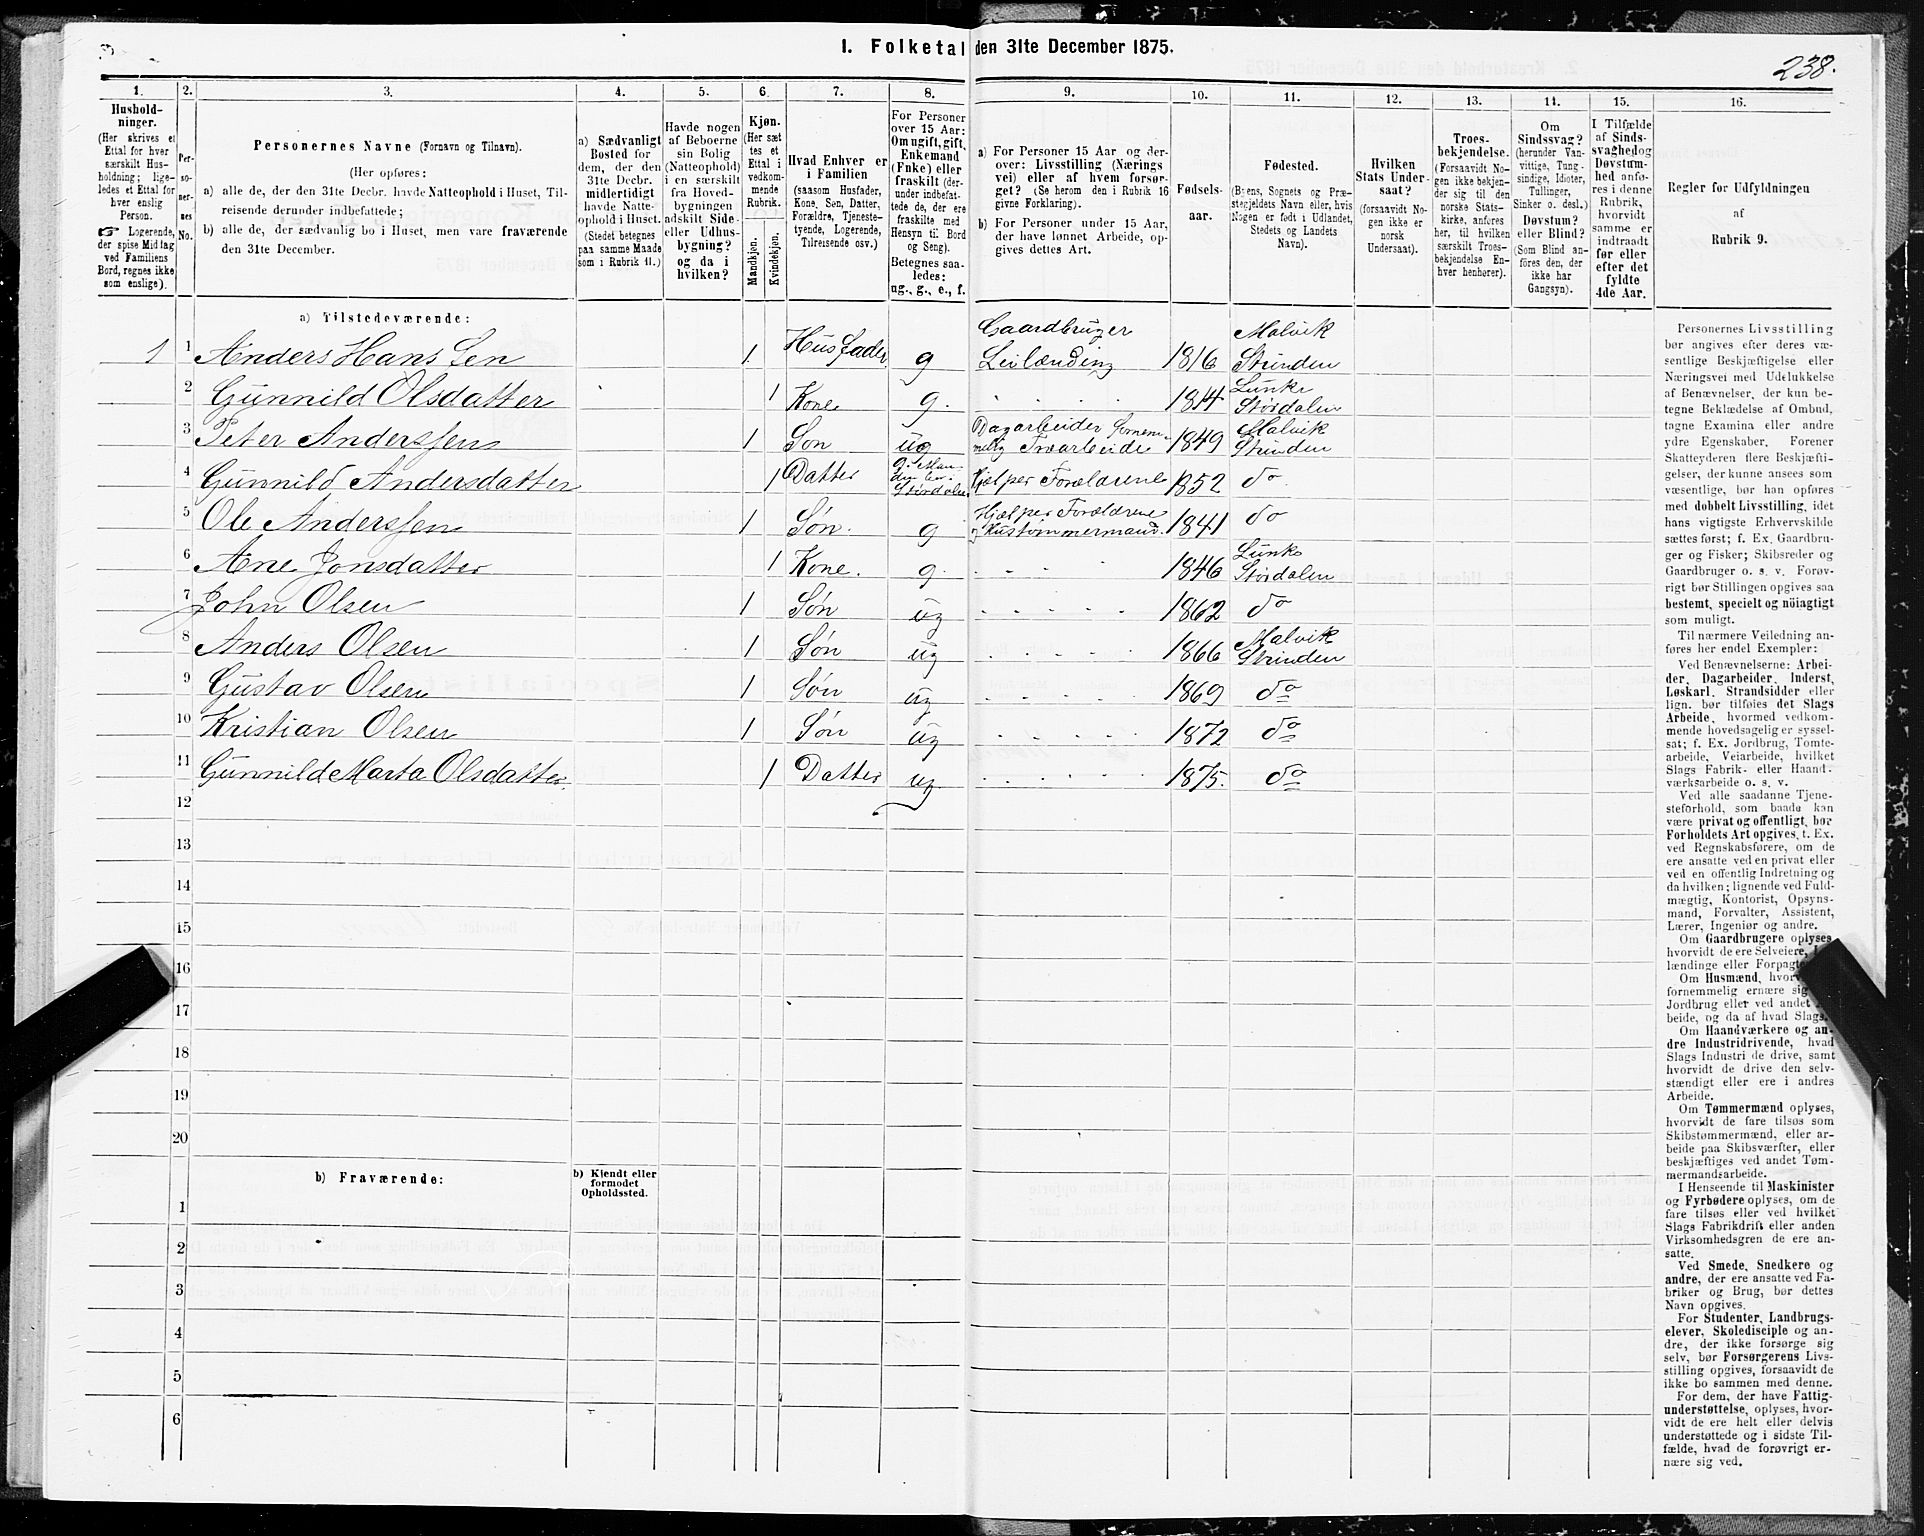 1. Folketal den 31te December 1875.
238.
1. 2. 3. 4. 5. 6. 7. 8. 9. 10. 11. 12. 13. 14. 15. 16.
Hushold-
ninger.
(Her skrives et
Ettal for hver
særskilt Hus-
holdning; lige-
ledes et Ettal for
hver enslig
Person.
☞ Logerende,
der spise Middag
ved Familiens
Bord, regnes ikke
som enslige).
Per-
so-
ner-
nes
No.
Personernes Navne (Fornavn og Tilnavn).
(Her opføres:
a) alle de, der den 31te Decbr. havde Natteophold i Huset, Til-
reisende derunder indbefattede;
b) alle de, der sædvanlig bo i Huset, men vare fraværende
den 31te December.
a) Sædvanligt
Bosted for
dem, der den
31te Decbr.
midlertidigt
havde Natte-
ophold i Huset.
(Stedet betegnes
paa samme Maade
som i Rubrik 11.)
Havde nogen
af Beboerne
sin Bolig
(Natteophold)
i en særskilt
fra Hoved-
bygningen
adskilt Side-
eller Udhus-
bygning?
og da i
hvilken?
Kjøn.
(Her sæt-
tes et
Ettal i
vedkom-
mende
Rubrik.
Mandkjøn.
Kvindekjøn.
Hvad Enhver er
i Familien
(saasom Husfader,
Kone, Søn, Datter,
Forældre, Tjeneste-
tyende, Logerende,
Tilreisende osv.)
For Personer
over 15 Aar:
Om ugift, gift,
Enkemand
(Enke) eller
fraskilt (der-
under indbefat-
tede de, der ere
fraskilte med
Hensyn til Bord
og Seng).
Betegnes saa-
ledes:
ug., g., e., f.
a) For Personer 15 Aar og der-
over: Livsstilling (Nærings
vei) eller af hvem forsør-
get? (Se herom den i Rubrik 16
givne Forklaring).
b) For Personer under 15 Aar,
der have lønnet Arbeide, op-
gives dettes Art.
Fødsels-
aar.
Fødested.
(Byens, Sognets og Præ-
stegjeldets Navn eller, hvis
Nogen er født i Udlandet,
Stedets og Landets
Navn).
Hvilken
Stats Under-
saat?
(forsaavidt No-
gen ikke er
norsk
Undersaat).
Troes-
bekjendelse.
(Forsaavidt No-
gen ikke bekjen-
der sig til den
norske Stats-
kirke, anføres
her, til hvilken
særskilt Troes-
bekjendelse En-
hver henhører).
Om
Sindssvag?
(herunder Van-
vittige, Tung-
sindige, Idioter,
Tullinger,
Sinker o. desl.)
Døvstum?
eller Blind?
(Som Blind an-
føres den, der
ikke har
Gangsyn).
I Tilfælde
af Sinds-
svaghed og
Døvstum-
hed anfø-
res i denne
Rubrik,
hvorvidt
samme er
indtraadt
før eller
efter det
fyldte
4de Aar.
Regler for Udfyldningen
af
Rubrik 9.
a) Tilstedeværende:
1 1 Anders Hans Sen 1. Husfader g Gaardbruger Leilænding 1816 Malvik Strinden
2 Gunnild Olsdatter 1 Kone g. 1814 Lunke Størdalen
3 Peter Anderssen 1 Søn ug Dagarbeider fornem- melig Træarbeide 1849 Malvik Strinden
4 Gunnild Andersdatter 1 Datter Størdalen Hjelper Forældrene 1852 do
5 Ole Anderssen 1 Søn. g Hjælper Forældrene og Hustømmermand 1841 do
6 Ane Jonsdatter 1 Kone. g. 1846 Lunke Størdalen
7 John Olsen 1 Søn ug 1862 do
8 Anders Olsen 1 Søn ug 1866 Malvik Strinden
9 Gustav Olsen 1 Søn ug 1869 do
10 Kristian Olsen 1 Søn ug 1872 do
11 Gunnild Marta Olsdatter 1 Datter ug 1875. do
12
13
14
15
16
17
18
19
20
b) Fraværende:
b) Kjendt eller
formodet
Opholdssted.
1
2
3
4
5
6
Personernes Livsstilling
bør angives efter deres væ-
sentlige Beskjæftigelse eller
Næringsvei med Udelukkelse
af Benævnelser, der kun be-
tegne Beklædelse af Ombud,
tagne Examina eller andre
ydre Egenskaber. Forener
Skatteyderen flere Beskjæfti-
gelser, der kunne ansees som
væsentlige, bør han opføres
med dobbelt Livsstilling, idet
hans vigtigste Erhvervskilde
sættes først; f. Ex. Gaardbru-
ger og Fisker; Skibsreder og
Gaardbruger o. s. v. Forøv-
rigt bør Stillingen opgives saa
bestemt, specielt og nöiagtigt
som muligt.
Til nærmere Veiledning an-
føres her endel Exempler:
Ved Benævnelserne: Arbei-
der, Dagarbeider, Inderst,
Løskarl, Strandsidder eller
lign. bør tilføies det Slags
Arbeide, hvormed vedkom-
mende hovedsagelig er syssel-
sat; f. Ex. Jordbrug, Tomte-
arbeide, Veiarbeide, hvilket
Slags Fabrik- eller Haand-
værksarbeide o. s. v.
Ved alle saadanne Tjene-
steforhold, som baade kan
være privat og offentligt, bør
Forholdets Art opgives, t. Ex.
ved Regnskabsførere, om de
ere ansatte ved en privat eller
ved en offentlig Indretning og
da hvilken; lignende ved Fuld-
mægtig, Kontorist, Opsyns-
mand, Forvalter, Assistent,
Lærer, Ingeniør og andre.
Om Gaardbrugere oplyses,
hvorvidt de ere Selveiere,
lændinge eller
Om Husmænd,
fornemmelig ernære sig
Jordbrug eller ved andet
beide, og da af hvad Slags.
Om Haandværkere og an-
dre Industridrivende, hvad
Slags Industri de drive, samt
hvorvidt de drive den selv-
stændigt eller ere i andres
Arbeide.
Om Tømmermænd oplyses,
hvorvidt de fare tilsøs som
Skibstømmermænd, eller ar-
beide paa Skibsværfter, eller
beskjæftiges ved andet Tøm-
mermandsarbeide.
I Henseende til Maskinister
og Fyrbødere oplyses, om de
fare tilsøs eller ved hvilket
Slags Fabrikdrift eller anden
Virksomhedsgren de ere an-
satte.
Ved Smede, Snedkere og
andre, der ere ansatte ved Fa-
briker og Brug, bør dettes
Navn opgives.
For Studenter, Landbrugs-
elever, Skoledisciple og an-
dre, der ikke forsørge sig
selv, bør Forsørgerens Livs-
stilling opgives, forsaavidt de
ikke bo sammen med denne.
For dem, der have Fattig-
understøttelse, oplyses, hvor-
vidt de ere helt eller delvis
understøttede og i sidste Til-
fælde, hvad de forøvrigt er-
nære sig ved.